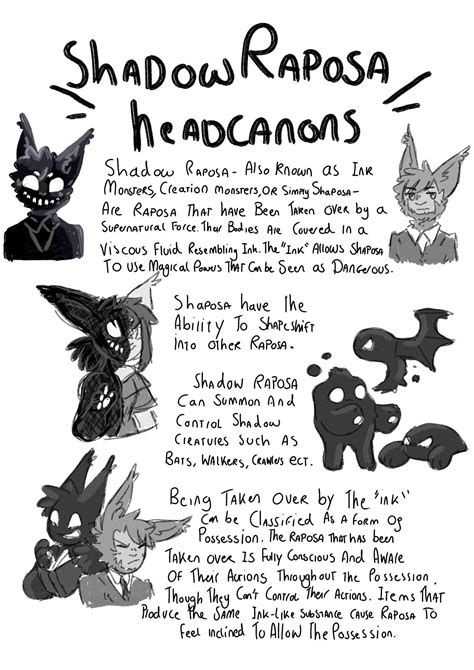 SHADOW RAPOSA
HEADCANONS
SHADOW RAPOSA - ALSO KNOWN AS INK
MONSTERS, CREATION MONSTERS, OR SIMPLY SHAPOSA-
ARE RAPOSA THAT HAVE BEEN TAKEN OVER BY A
SUPERNATURAL FORCE. THEIR BODIES ARE COVERED IN A
VISCOUS FLUID RESEMBLING INK. THE "INK" ALLOWS SHAPOSA
TO USE MAGICAL POWERS THAT CAN BE SEEN AS DANGEROUS.
SHAPOSA HAVE THE
ABILITY TO SHAPESHIFT
INTO OTHER RAPOSA.
SHADOW RAPOSA
CAN SUMMON AND
CONTROL SHADOW
CREATURES SUCH AS
BATS, WALKERS, CRAWLERS ECT.
BEING TAKEN OVER BY THE "INK"
CAN BE CLASSIFIED AS A FORM OF
POSSESSION. THE RAPOSA THAT HAS BEEN
TAKEN OVER IS FULLY CONSCIOUS AND AWARE
OF THEIR ACTIONS THROUGHOUT THE POSSESSION,
THOUGH THEY CAN'T CONTROL THEIR ACTIONS. ITEMS THAT
PRODUCE THE SAME INK-LIKE SUBSTANCE CAUSE RAPOSA TO
FEEL INCLINED TO ALLOW THE POSSESSION.